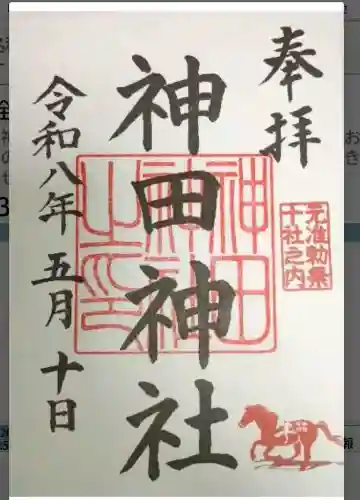 奉拝
元准勅祭
十社之内
神田神社
神田
神社
之印
令和八年 五月 十日